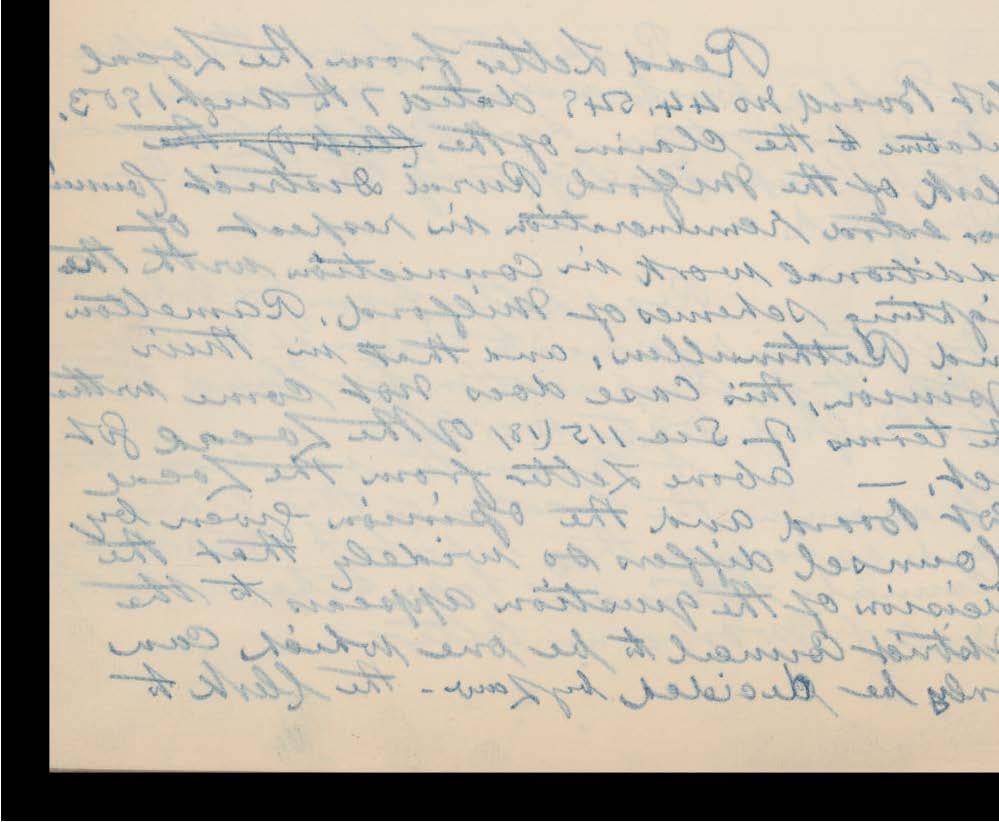 Read Letter from the Local
vt Board no 44.545 dated 7th Augt 1903.
lative to the Claim of the Clerk of the
lerk of the Milford Rural District Counci
or extra remuneration in respect of
dditional work in Connection with the
ighting schemes of Milford, Ramelton
nd Rathmullen, and that in their
pinion, this Case does not Come within
he terms of Sec 115(18) of the Local Govt
ct, — above Letter from the Local
vt Board and the opinion given by
Counsel differs so widely that the
cision of the question appears to the
strict Council to be one which can
only be decided by Law - the Clerk to